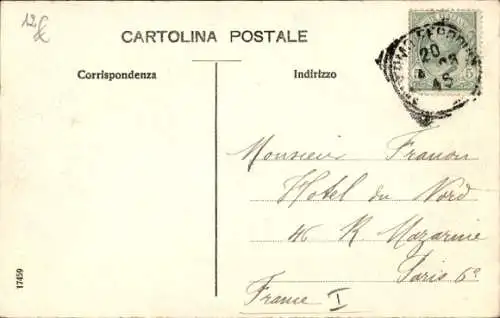 12
CARTOLINA POSTALE
Corrispondenza
Indirizzo
20
15
5
Monsieur Franon
Hotel du Nord
46 R Mazarine
Paris 6e
France I
17459